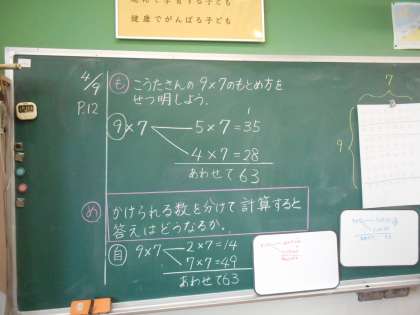 健康でがんばる子ども
4/9
P.12
も こうたさんの 9×7のもとめ方を
せつ明しよう.
9×7
5×7=35
4×7=28
あわせて63
7
9
め かけられる数を分けて計算すると
答えはどうなるか.
自 9×7
2×7=14
7×7=49
あわせて63